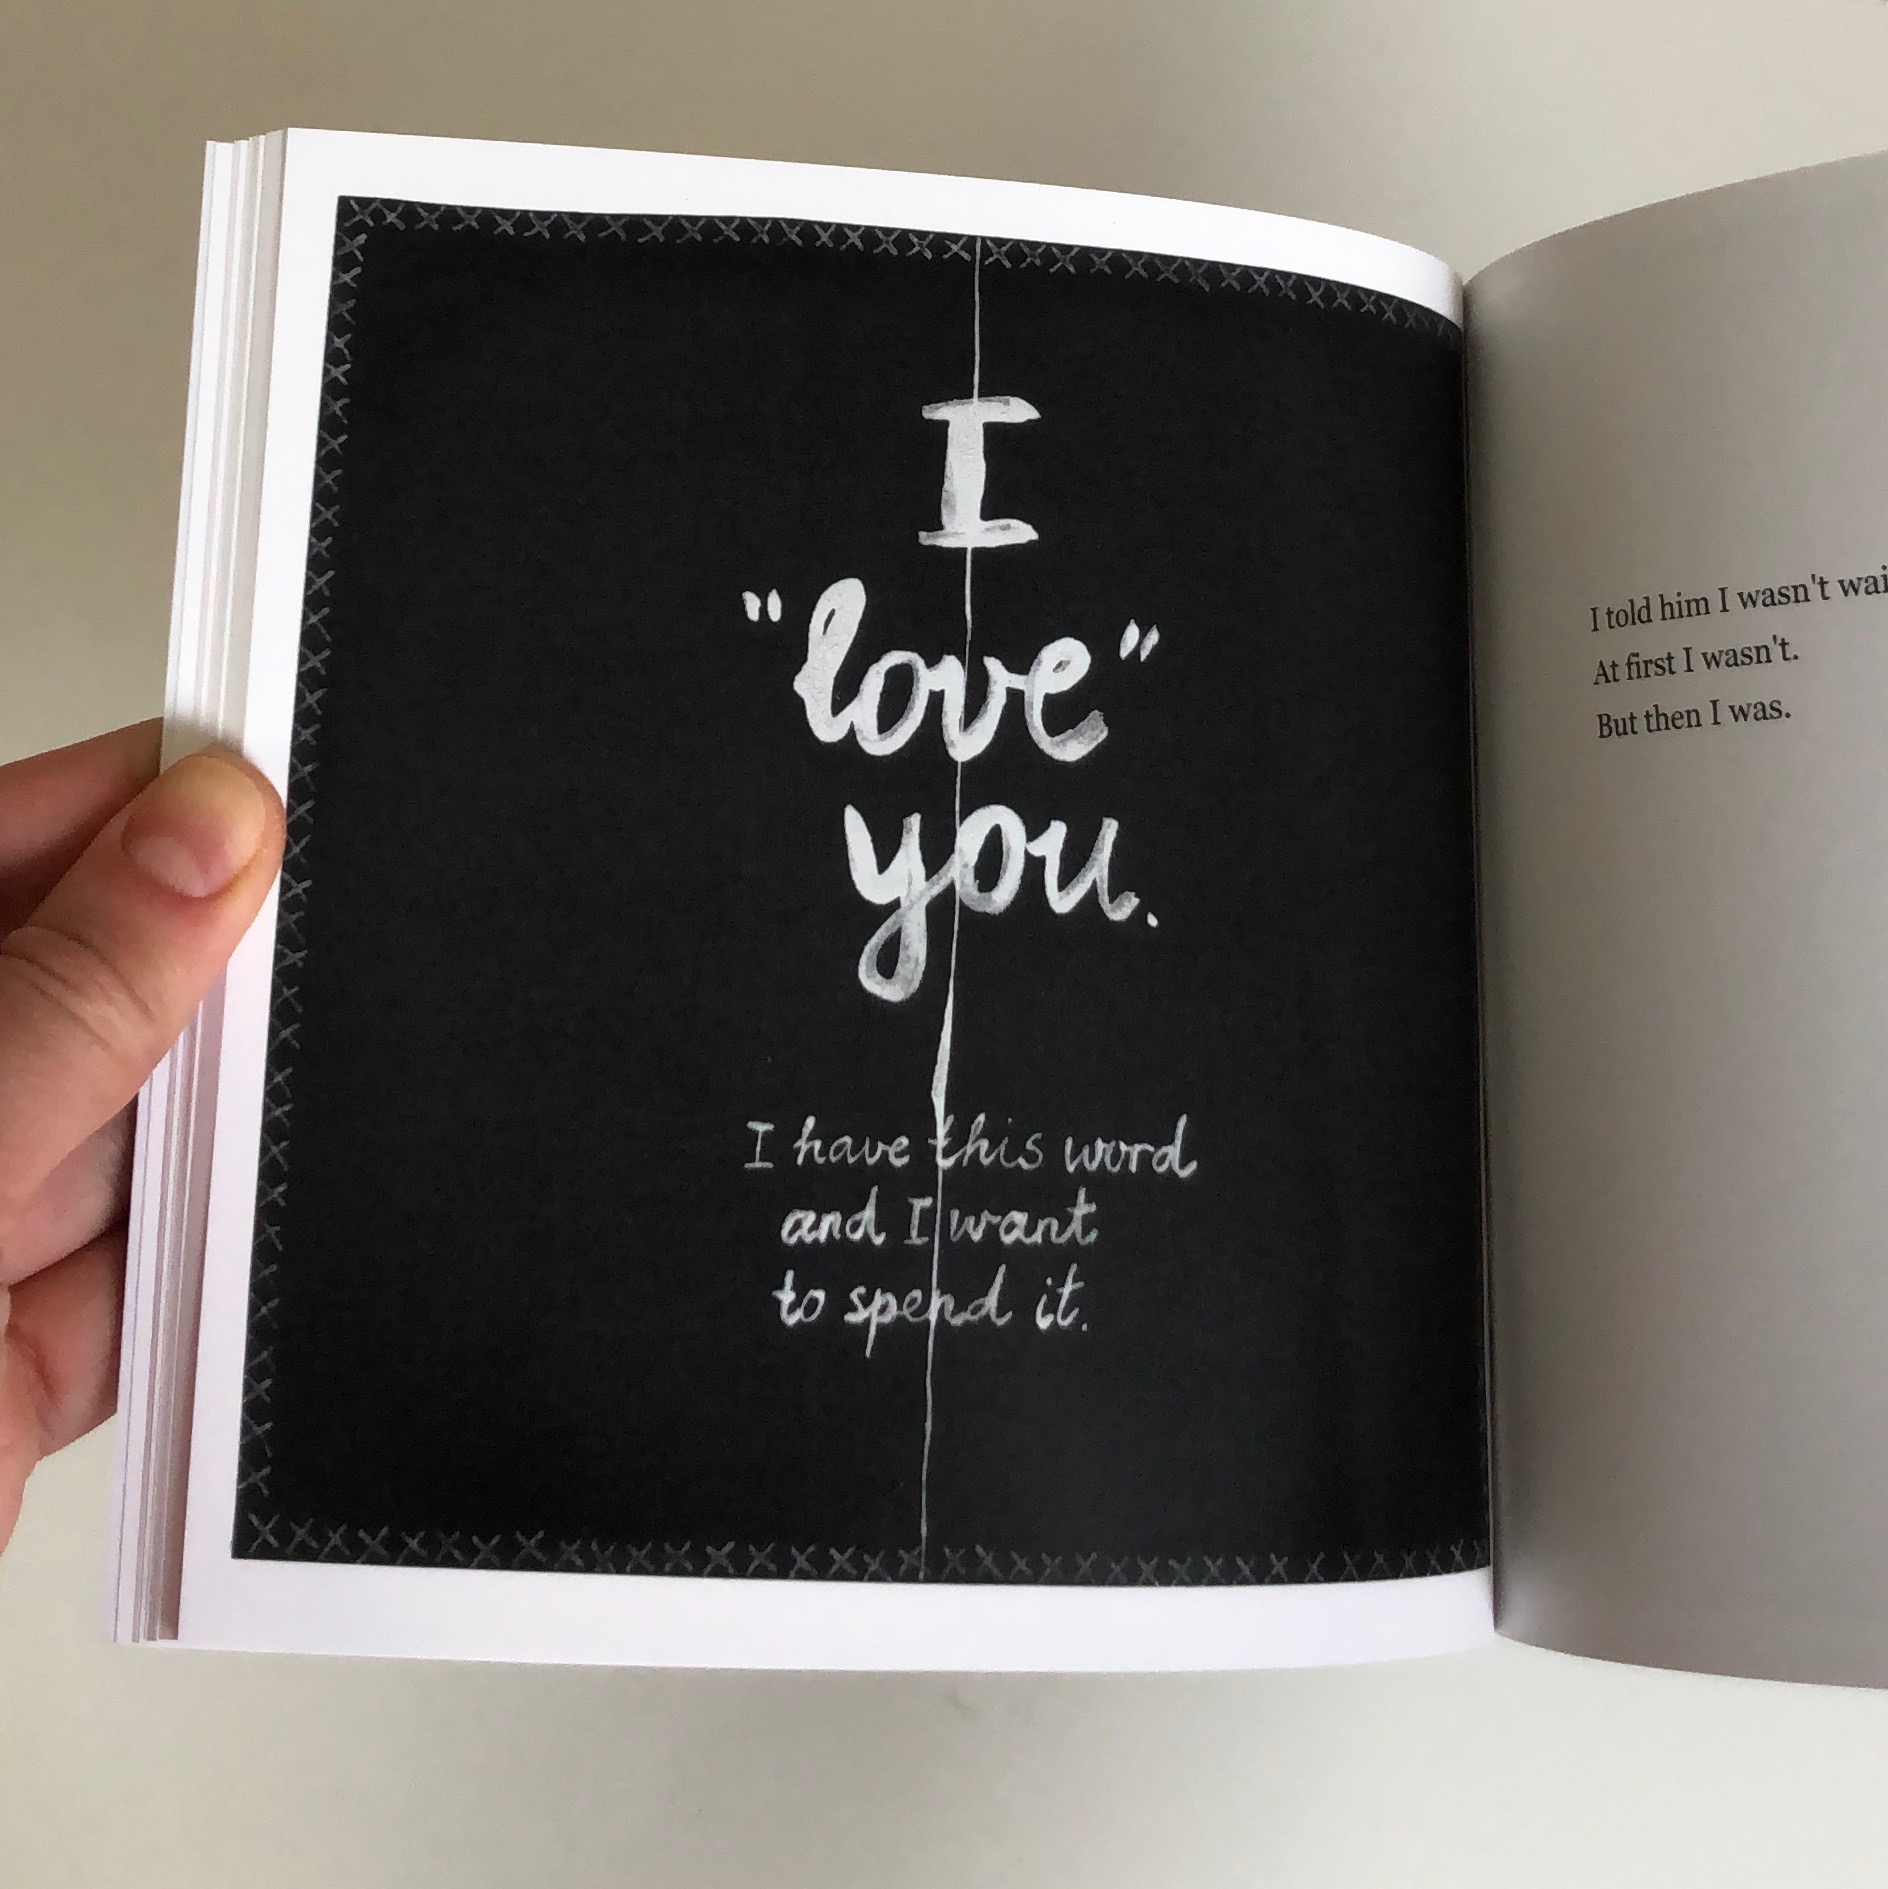 I
"love"
you.
I have this word
and I want
to spend it.
I told him I wasn't
At first I wasn't.
But then I was.